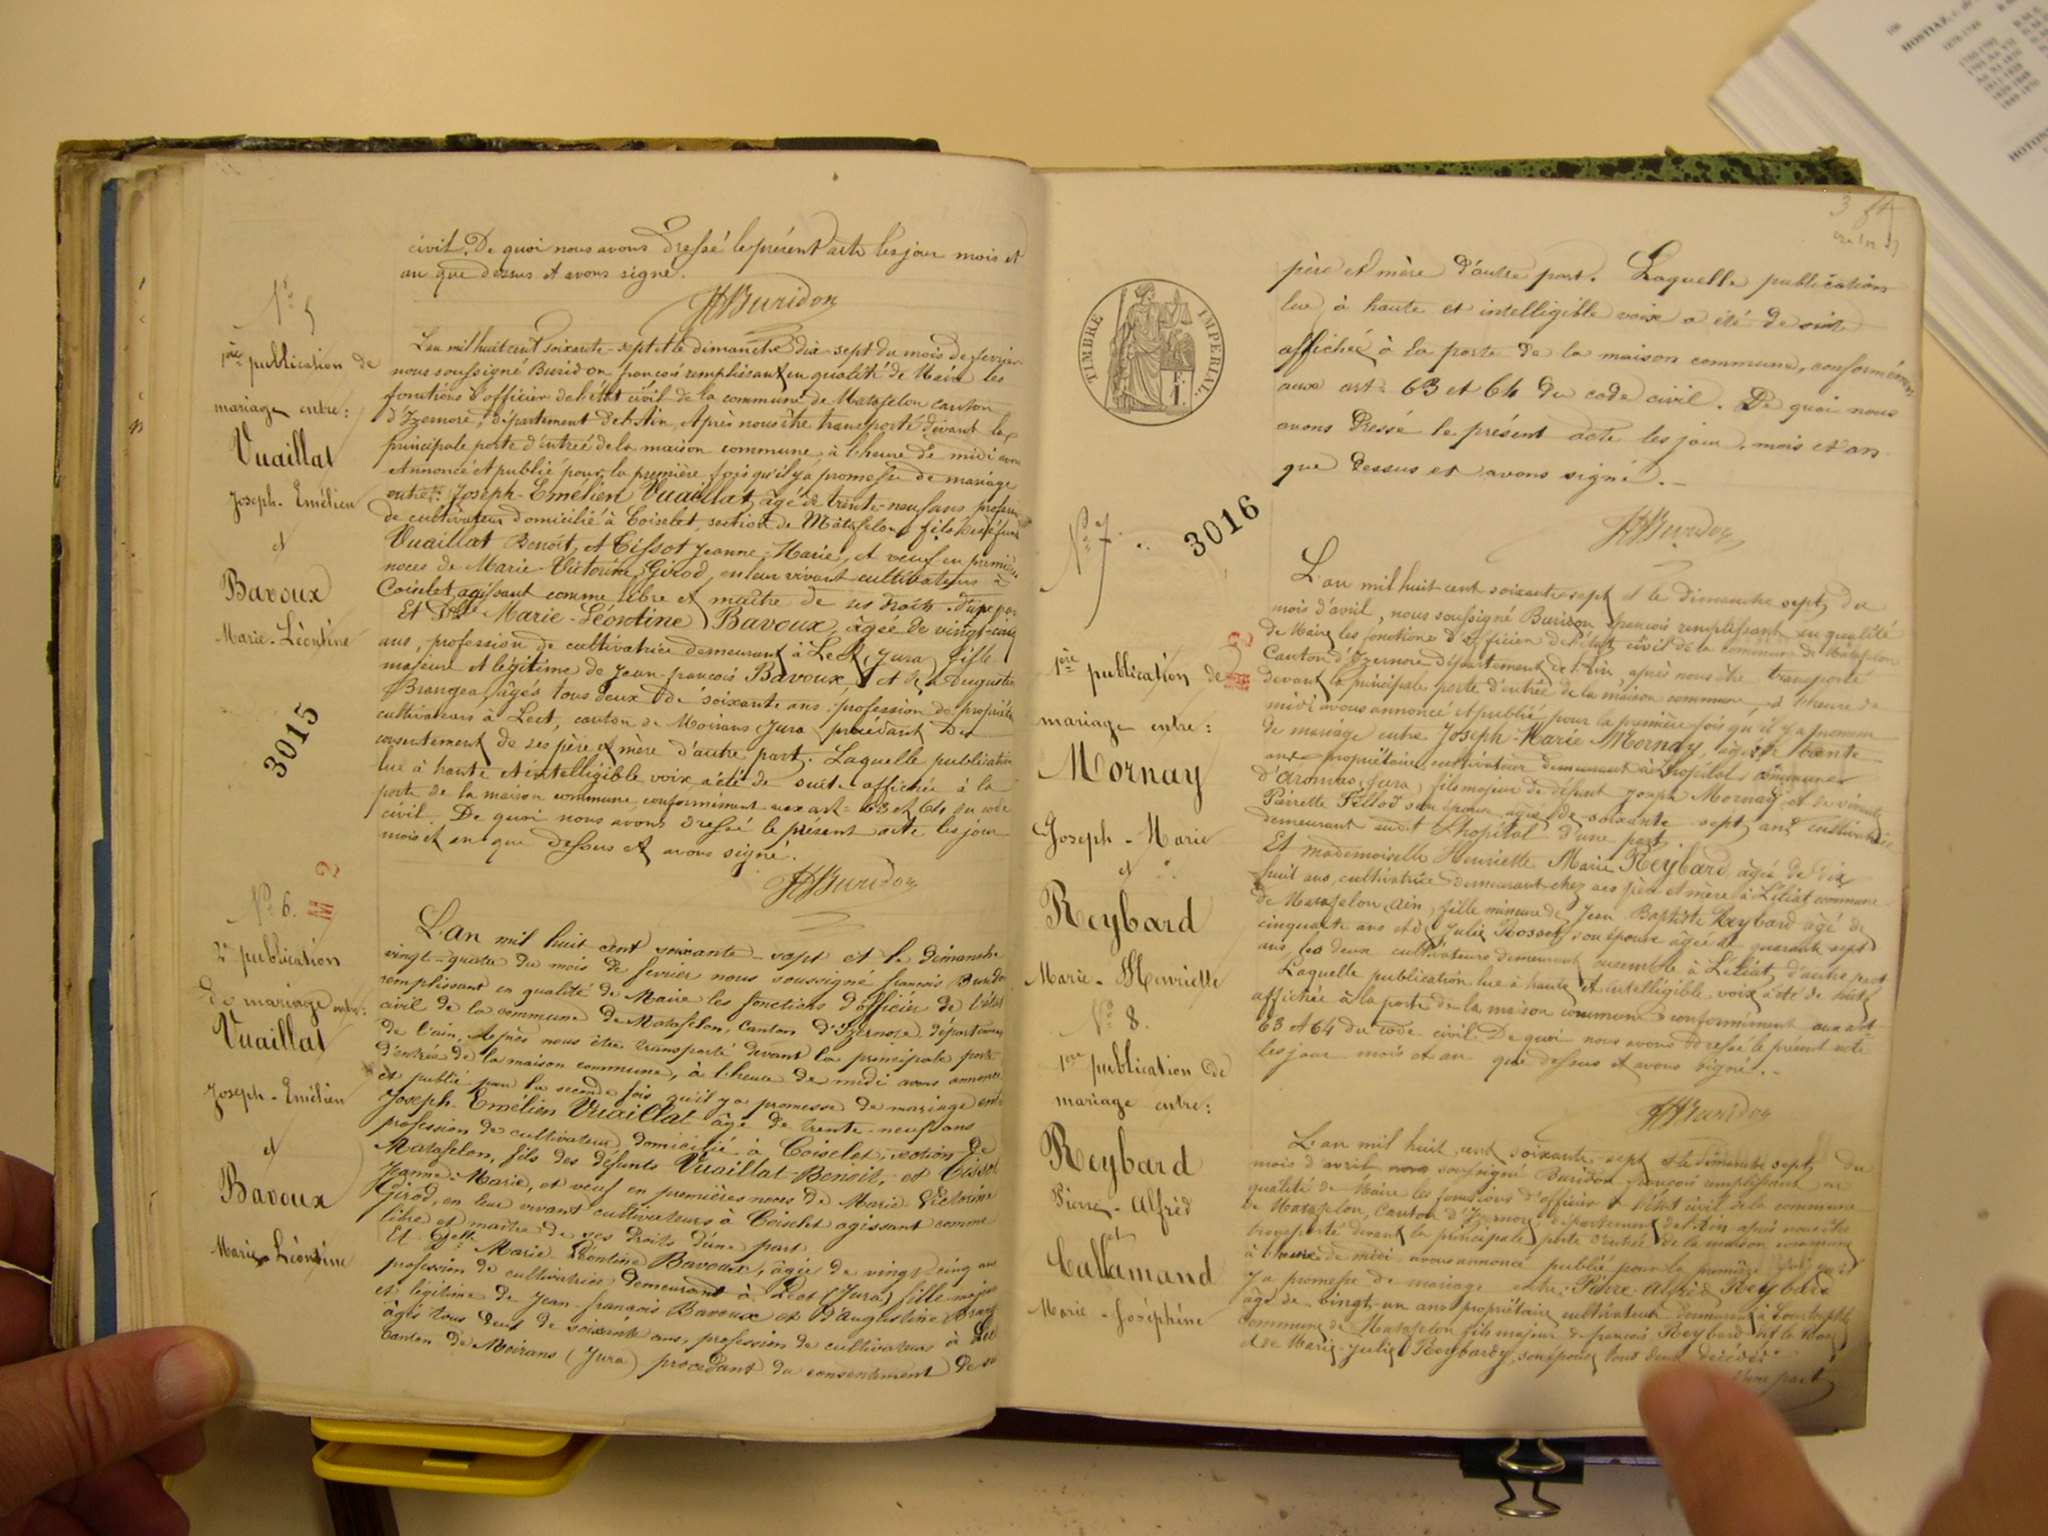 civil. De quoi nous avons dressé le présent acte les jour mois et
an que dessus et avons signé.
FBuridon
N° 5
1ère publication de
mariage entre:
Vuaillat
Joseph-Emélien
et
Bavoux
Marie-Léontine
3015
L'an mil huit cent soixante-sept et le dimanche dix-sept du mois de fevrier
nous soussigné Buridon françois remplissant en qualité de Maire les
fonctions d'officier de l'état civil de la commune de Matafelon canton
d'Izernore, département de l'Ain, Après nous être transporté devant la
principale porte d'entrée de la maison commune à l'heure de midi avons
Annoncé et publié pour la première fois qu'il y a promesse de mariage
entre: Joseph-Emélien Vuaillat, âgé de trente-neuf ans profession
de cultivateur domicilié à Coiselet, section de Matafelon, fils des défunts
Vuaillat Benoit, et Tissot Jeanne-Marie, et veuf en première
noces de Marie-Victorine Girod, en leur vivant cultivateurs à
Coiselet, agissant comme libre et maître de ses droits d'une part
Et Dlle Marie-Léontine Bavoux, âgée de vingt-cinq
ans, profession de cultivatrice demeurant à Lect, Jura, fille
majeure et légitime de Jean-françois Bavoux et d'Augustine
Brangea, âgés tous deux de soixante ans, profession de propriétaires
cultivateurs à Lect, canton de Moirans, Jura procédant du
consentement de ses père et mère d'autre part. Laquelle publication
lue à haute et intelligible voix a été de suite affichée à la
porte de la maison commune, conformément aux art= 63 et 64 du code
civil. De quoi nous avons dressé le présent acte les jour
mois et an que dessus et avons signé.
FBuridon
N° 6.
M 2
2e publication
de mariage entre:
Vuaillat
Joseph-Emélien
et
Bavoux
Marie Léontine
L'an mil huit cent soixante-sept et le dimanche
vingt-quatre du mois de fevrier nous soussigné françois Buridon
remplissant en qualité de Maire les fonctions d'officier de l'état
civil de la commune de Matafelon, Canton d'Izernore, département
de l'ain, Après nous être transporté devant la principale porte
d'entrée de la maison commune, à l'heure de midi avons annoncé
et publié pour la seconde fois qu'il y a promesse de mariage entre
Joseph-Emélien Vuaillat âgé de trente-neuf ans
profession de cultivateur domicilié à Coiselet, section de
Matafelon, fils des défunts Vuaillat-Benoit, et Tissot
Jeanne-Marie, et veuf en premières noces de Marie Victorine
Girod, en leur vivant cultivateurs à Coiselet agissant comme
libre et maître de ses droits d'une part
Et Delle Marie Léontine Bavoux, âgée de vingt-cinq ans
profession de cultivatrice demeurant à Lect (Jura) fille majeure
et légitime de Jean-françois Bavoux et d'Augustine Brangea
âgés tous deux de soixante ans, profession de cultivateurs à Lect
Canton de Moirans (Jura) procédant du consentement de ses
TIMBRE IMPERIAL.
père et mère d'autre part. Laquelle publication
lue à haute et intelligible voix a été de suite
affichée à la porte de la maison commune, conformément
aux art= 63 et 64 du code civil. De quoi nous
avons dressé le présent acte les jour, mois et an
que dessus et avons signé.
FBuridon
N° 7.
3016
1ère publication de
mariage entre:
Mornay
Joseph-Marie
et
Reybard
Marie-Henriette
L'an mil huit cent soixante sept et le dimanche sept du
mois d'avril, nous soussigné Buridon françois remplissant en qualité
de Maire les fonctions d'officier de l'état civil de la commune de Matafelon
Canton d'Izernore Département de l'Ain, après nous être transporté
devant la principale porte d'entrée de la maison commune, à l'heure de
midi avons annoncé et publié pour la première fois qu'il y a promesse
de mariage entre Joseph-Marie Mornay, âgé de trente
ans propriétaire cultivateur demeurant à L'hopital, commune
d'Aromas, Jura, fils majeur de défunt Joseph Mornay et de vivante
Pierrette Pillod son épouse âgée de soixante sept ans cultivatrice
demeurant audit L'hopital d'une part
Et mademoiselle Henriette Marie Reybard âgée de dix
huit ans, cultivatrice demeurant chez ses père et mère à Léliat commune
de Matafelon, Ain, fille mineure de Jean Baptiste Reybard âgé de
cinquante ans et de Julie Rosset son épouse âgée de quarante sept
ans, les deux cultivateurs demeurant ensemble à Léliat, d'autre part
Laquelle publication lue à haute et intelligible voix a été de suite
affichée à la porte de la maison commune conformément aux art=
63 et 64 du code civil. De quoi nous avons dressé le présent acte
les jour mois et an que dessus et avons signé.
FBuridon
N° 8.
1ère publication de
mariage entre:
Reybard
Pierre-Alfréd
et
Callamand
Marie-Joséphine
L'an mil huit cent soixante-sept et le dimanche sept du
mois d'avril nous soussigné Buridon françois remplissant en
qualité de Maire les fonctions d'officier de l'état civil de la commune
de Matafelon, Canton d'Izernore département de l'Ain après nous être
transporté devant la principale porte d'entrée de la maison commune
à l'heure de midi avons annoncé publié pour la première fois qu'il
y a promesse de mariage entre Pierre Alfred Reybard
âgé de vingt-un ans propriétaire cultivateur demeurant à
commune de Matafelon fils majeur de françois Reybard dit le
et de Marie-Julie Reybard, son épouse tous deux décédés
d'une part